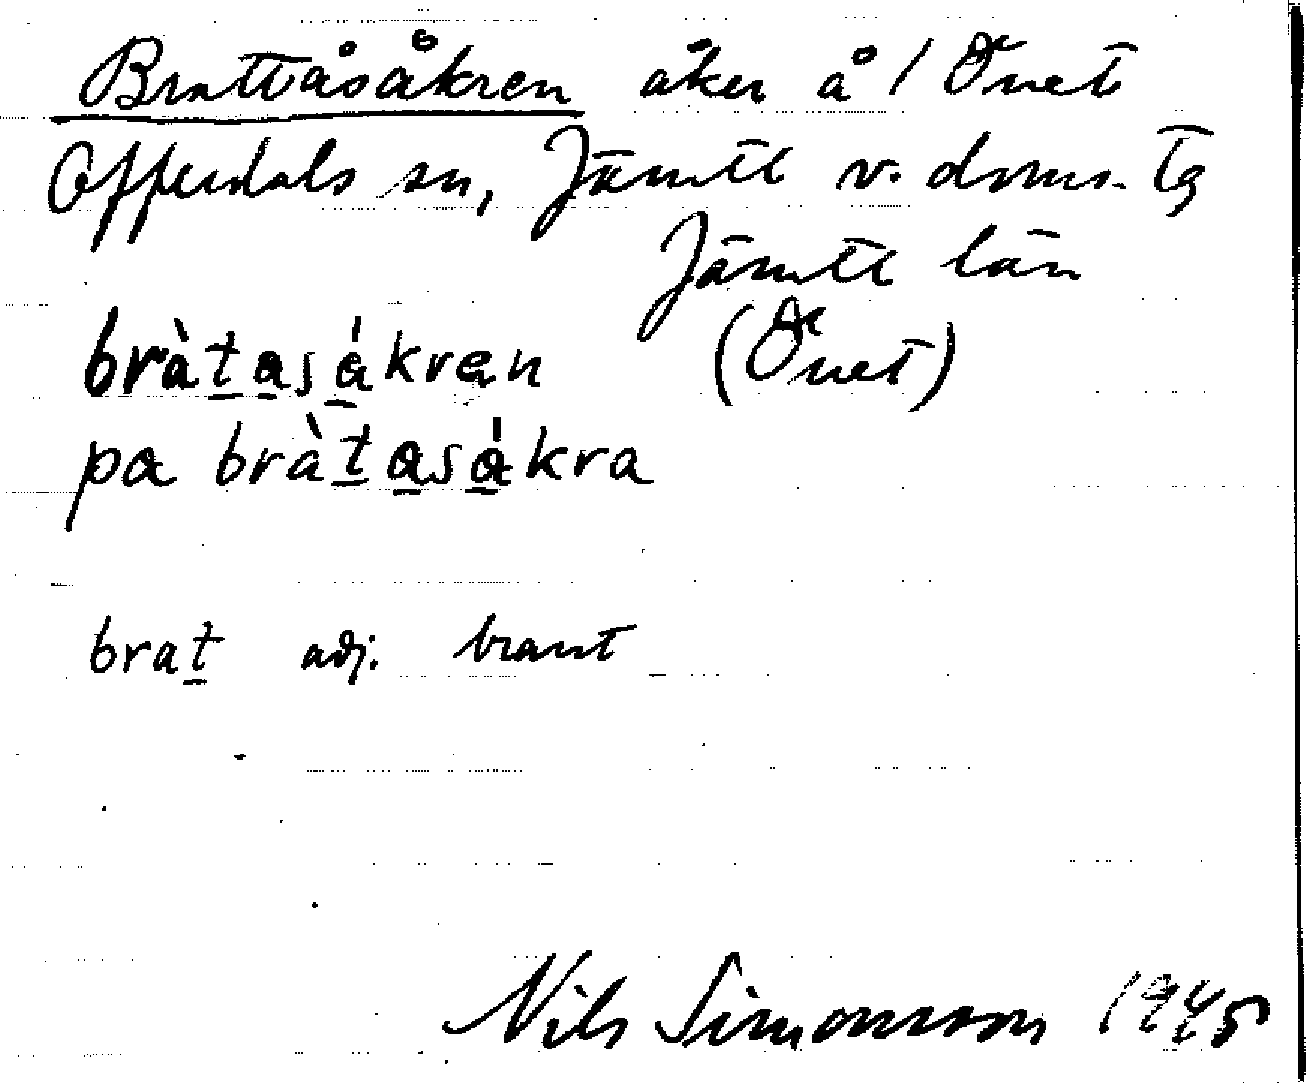 Brattåsåkren åker å 1 Önet
Offerdals sn, Jämtl v. doms. tg
Jämtl län
bràtasákren (Önet)
pa bràtasákra
brat adj. brant
Nils Simonsson 1945